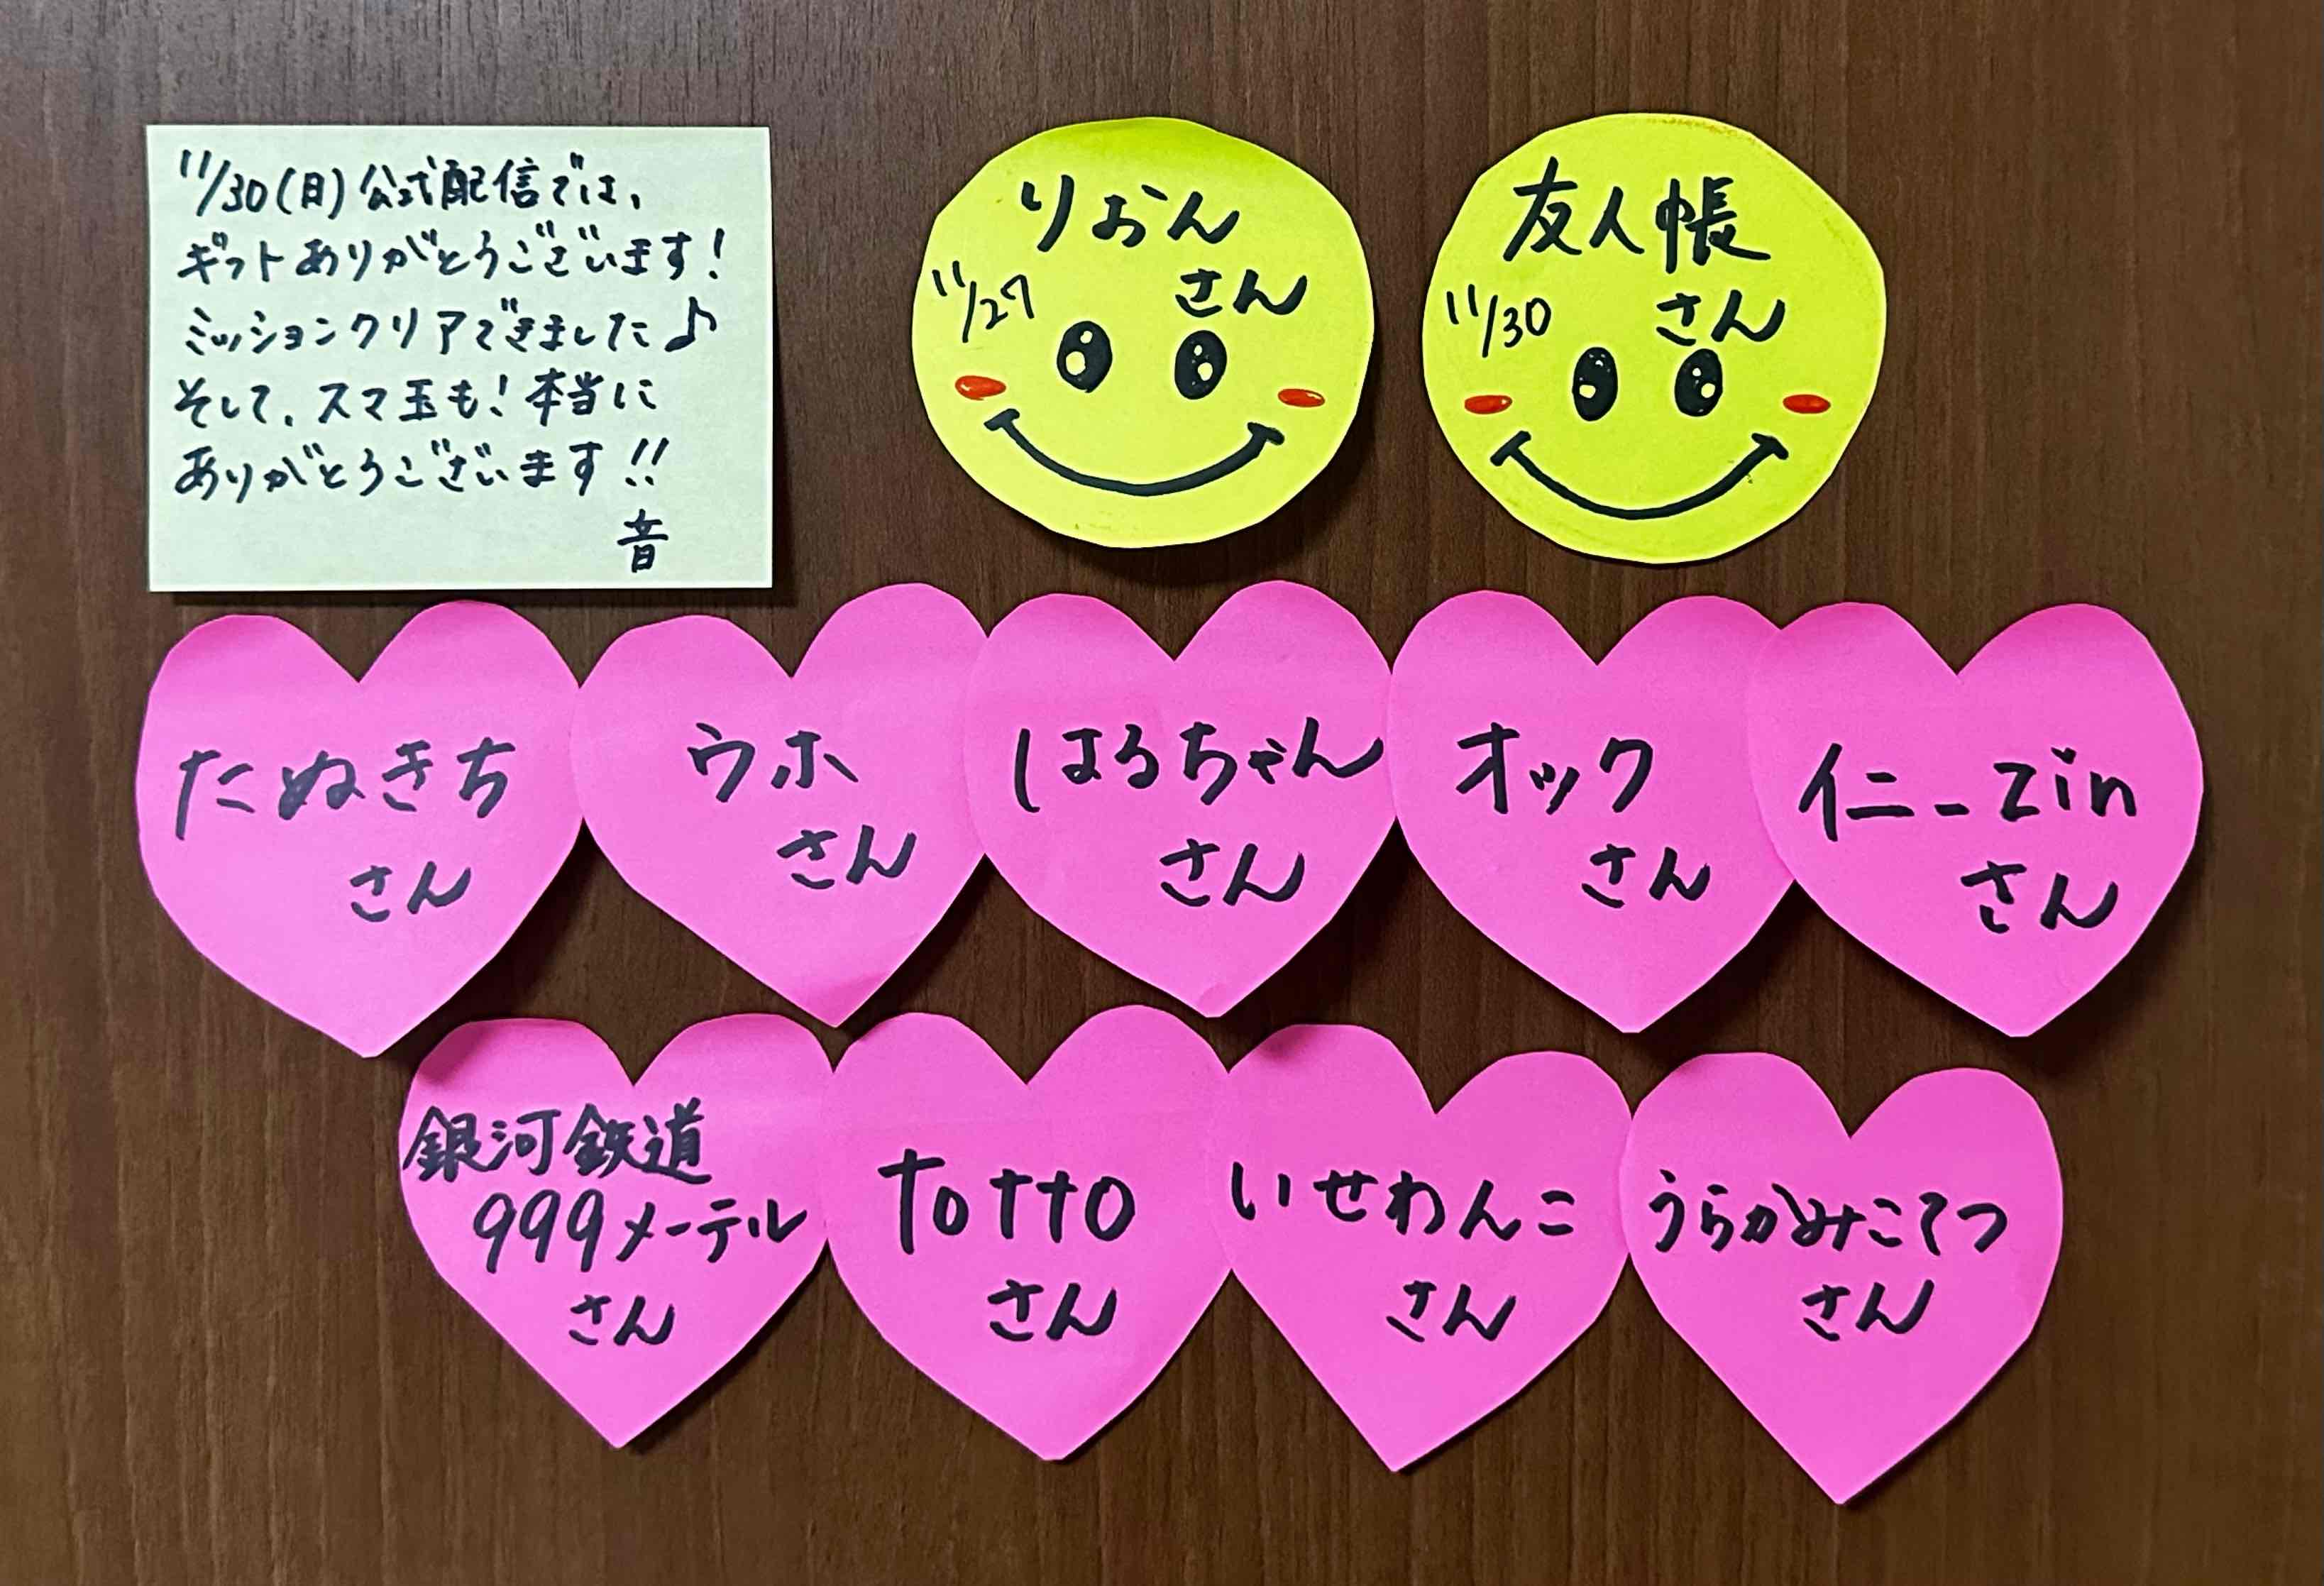 11/30(日)公式配信では、
ギフトありがとうございます!
ミッションクリアできました♪
そして、スマ玉も!本当に
ありがとうございます!!
音
りおん
さん
11/27
友人帳
さん
11/30
たぬきち
さん
ウホ
さん
はるちゃん
さん
オック
さん
仁ニーZin
さん
銀河鉄道
999メーテル
さん
Totto
さん
いせわんこ
さん
うらかみこてつ
さん